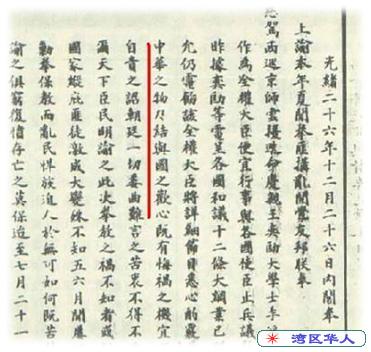 光緒二十六年十二月二十六日內閣奉
上諭本年夏間拳匪搆亂開釁友邦朕奉
慈駕西巡京師雲擾迭命慶親王奕劻大學士李
作為全權大臣便宜行事與各國使臣止兵議
昨據奕劻等電呈各國和議十二條大綱業已
允仍電飭該全權大臣將詳細節目悉心酌覈
中華之物力結與國之歡心既有悔禍之機宜
自責之詔朝廷一切委曲難言之苦衷不得不
爾天下臣民明諭之此次拳教之禍不知者咸
國家縱庇匪徒激成大變殊不知五六月間屢
剿拳保教而亂民悍族迫人於無可如何既苦
諭之俱窮復憤存亡之莫保迨至七月二十一
湾区华人